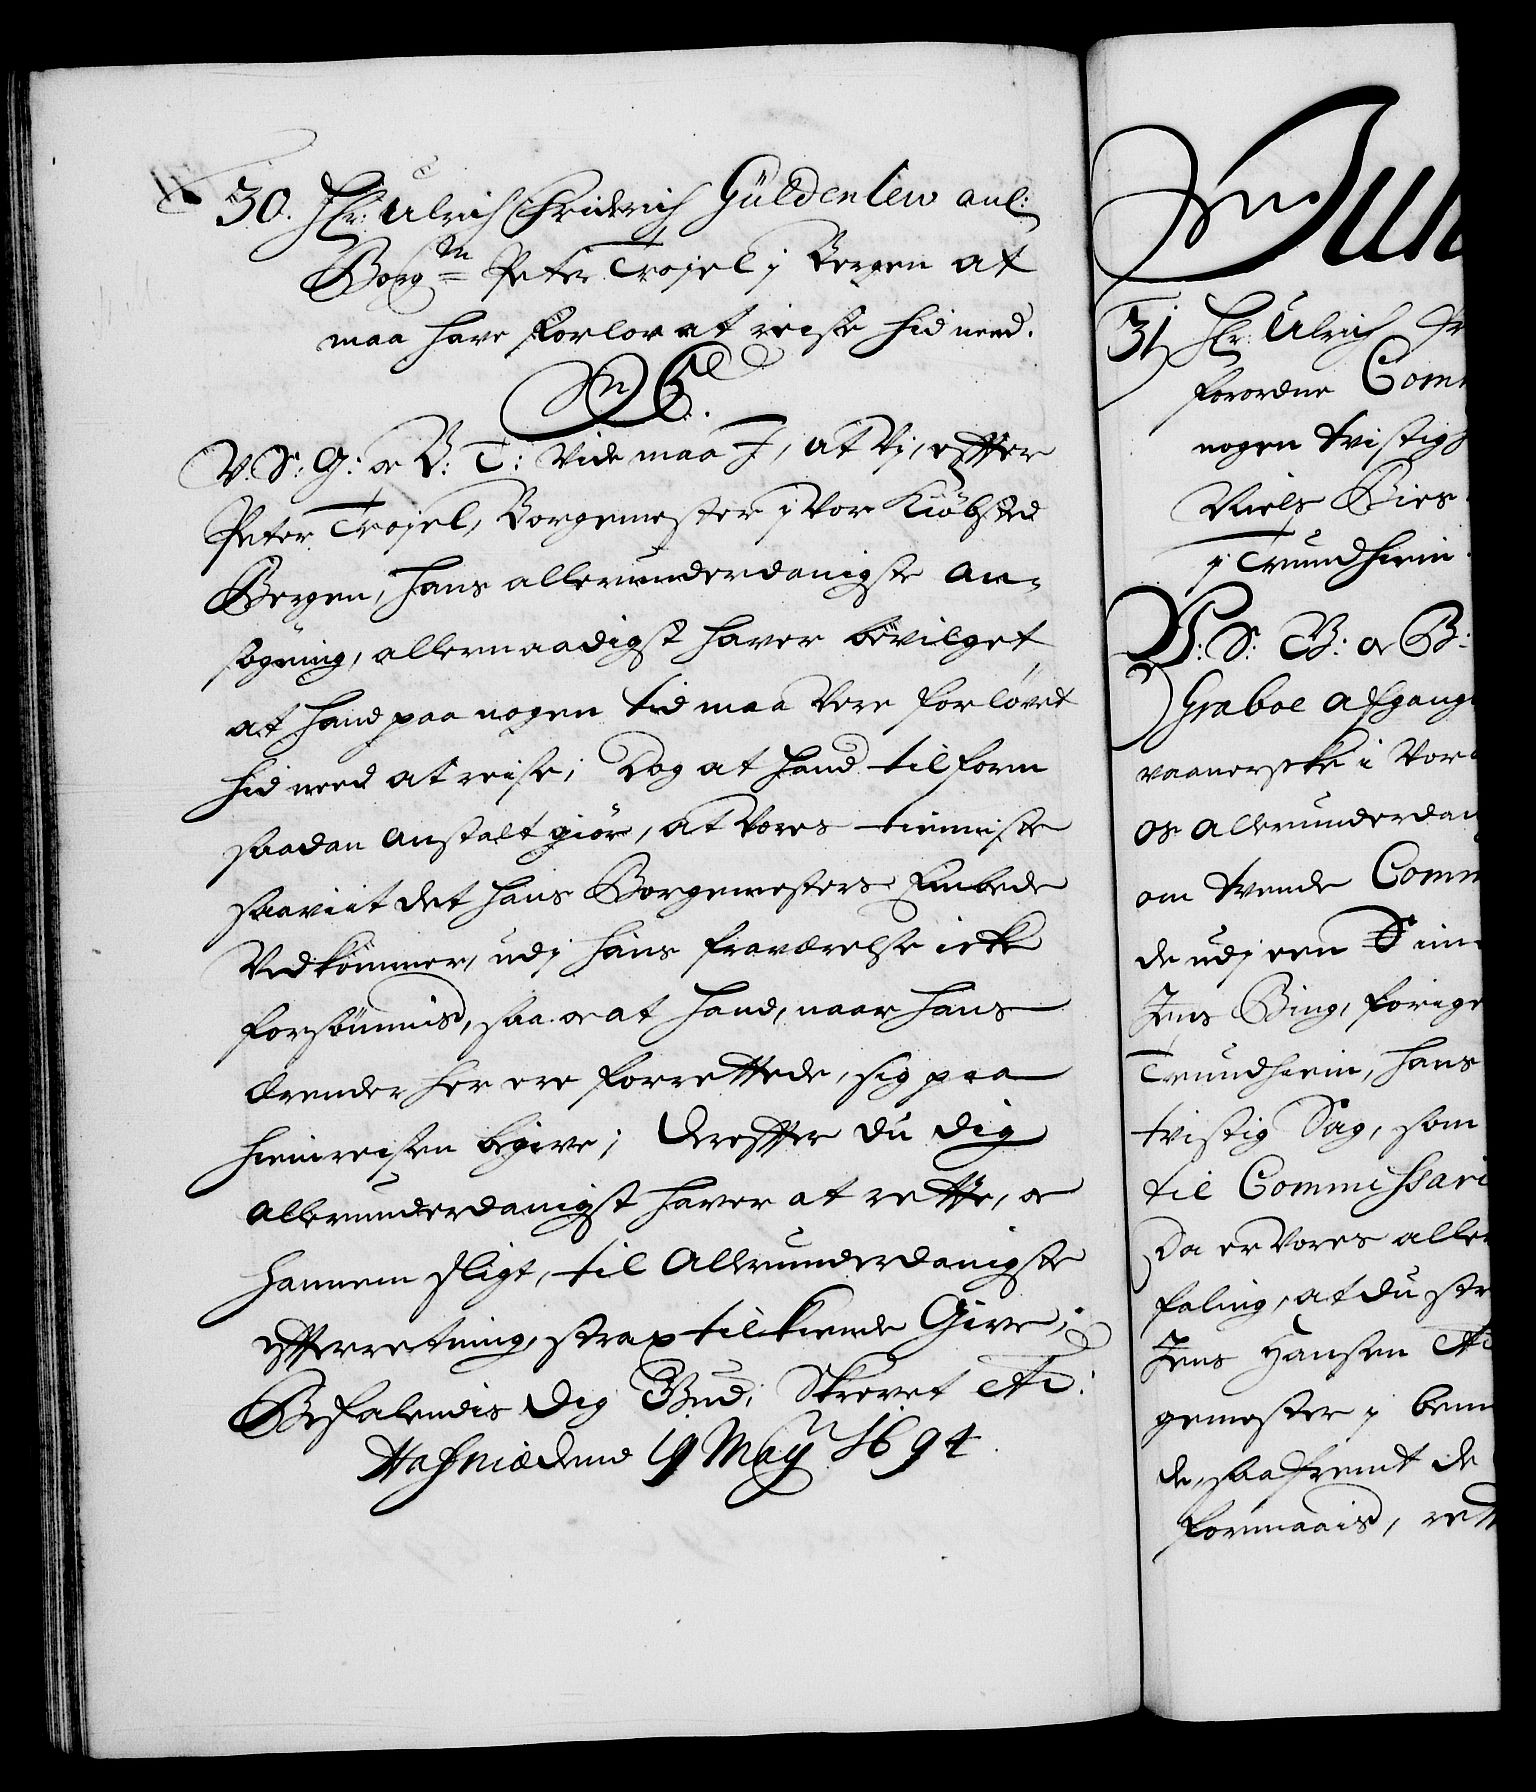 30. Hr: Ulrich Friderich Güldenlew anl:
Borg m Peter Trojel j Bergen at
maa have forlov at reise hid need.
C5
V. S: G: oc B: T: Vide maa I, at Vj, effter
Peter Trojel, Borgemester j Vor Kiöbsted
Bergen, hans allerunderdanigste an-
søgning, allernaadigst haver bevilget
at hand paa nogen tid maa Vere forlövet
hid need at reise; Dog at hand tilforn
saadan anstalt giör, at Vores tienniste
saaviit det hans Borgemesters Embede
Vedkommer, udj hans fraværelse icke
forsömmis, saa oc at hand, naar hans
Ærender her ere forrettede, sig paa
hiemreisen begive; Dereffter du dig
allerunderdanigst haver at rette, oc
hannem sligt, til Allerunderdanigste
effterretning, strax tilkiende Give;
Befalendis dig Gud; Skrevet etc:
Hafniæ denne 19 May 1694.
Jun
31 Hr: Ulrich Fr
forordne Com
nogen tvistig
Niels Bies
j Trundhiem
V: S: G: oc B:
Graboe afgang
vaanerske i Vor
os allerunderdan
om tvende Comm
de udj een
Jens Bing, forige
Trundhiem, hans
tvistig Sag, som
til Commissari
Da er Vores aller
faling, at du str
Jens Hansen
gemester j bem
de, saa fremt de
formaais, rett